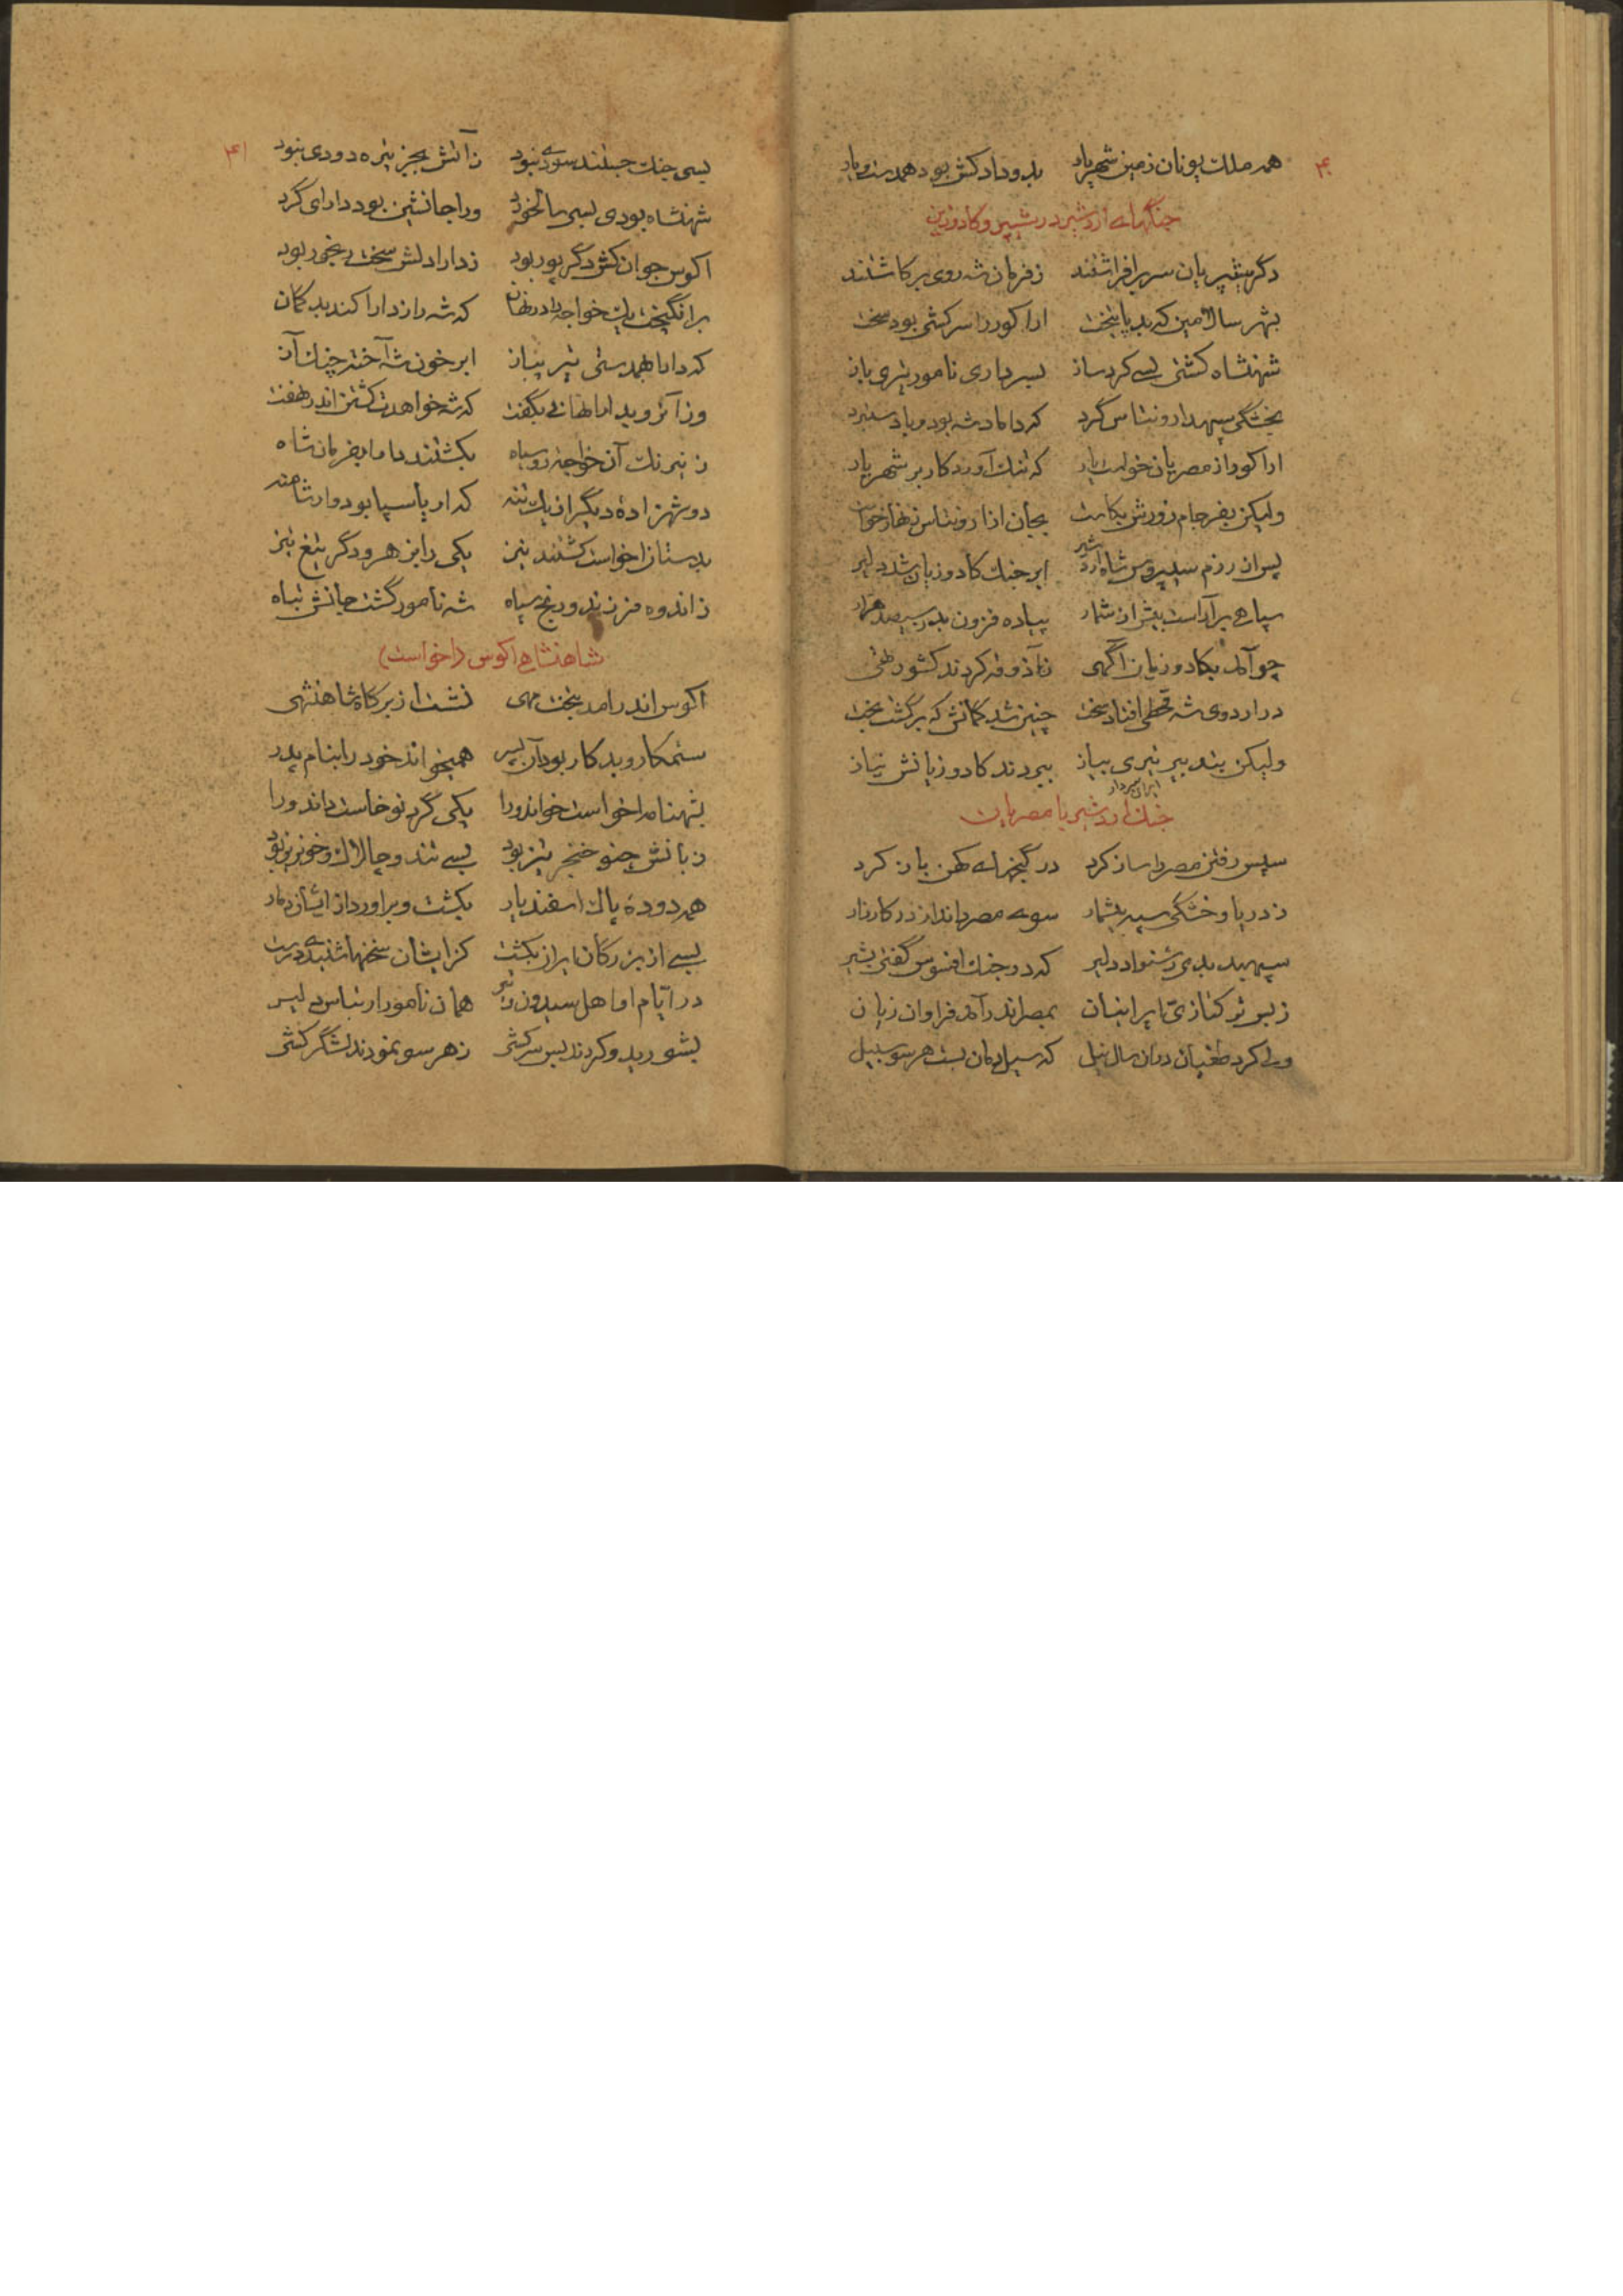 ۴۰
همه ملک یونان زمین شهریار بدو داد کش بود همدست و یار
جنگهای اردشیر در سیپر و کادوزین
دگر سیپریان سر برافراشتند ز فرمان شه روی برکاشتند
بشهر سالامین که بد پایتخت اواکوررا سرکشی بود سخت
شهنشاه کشتی بسی کرد ساز بسرداری نامور تیری باز
بخشکی سپهدار ونتاس گرد که داماد شه بود و یار ستبرد
اواکور از مصریان خواست یار که تنک آورد کار بر شهریار
ولیکن بفرجام زورش بکاست بجان از ارونتاس زنهار خواست
پس از رزم سیپروس شاه اردشیر ابر جنک کادوزیان شد دلیر
سپاهی برآراست بیش از شمار پیاده فزون بد ز سیصد هزار
چو آمد بکادوزیان آگهی ز آذوقه کردند کشور تهی
در اردوی شه قحطی افتاد سخت چنین شد گمانش که برگشت بخت
ولیکن بتدبیر تیری بباز ببردند کادوزیانش نیاز
جنک اردشیر با مصریان
سپس رفتن مصر را ساز کرد در گنجهای کهن باز کرد
ز دریا و خشکی سپه بیشمار سوی مصر راند از در کارزار
سپهبد بدی رشنواد دلیر که در جنک افسوس گفتی بشیر
ز بس ترکتازی ایرانیان بمصر اندر آمد فراوان زیان
ولی کرد طغیان در آن سال نیل که سیل دمان بست هر سو سبیل
۴۱
بسی جنک جستند سودی نبود ز آتش بجز تیره دودی نبود
شهنشاه بودی بسی سالخورد ورا جانشین بود دارای گرد
اکوس جوان کش دگر پور بود ز دارا دلش سخت رنجور بود
برانگیخت یک خواجه را در نهان که شه را ز دارا کند بدگمان
که دارا بهمدستی تیر بباز ابر خون شه آخته چنک آز
وز آنرو بدارا نهانی بگفت که شه خواهدت کشتن اندر نهفت
ز نیرنک آن خواجه روسیاه بکشتند دارا بفرمان شاه
دو شهزاده دیگر از یک تنه که اریاسپا بود و ارشامنه
بدستان اخواست کشتند نیز یکی را بزهر و دگر تیغ تیز
ز اندوه فرزند و رنج سپاه شه نامور گشت جانش تباه
شاهنشاهی اکوس (اخواست)
اکوس اندر آمد بتخت مهی نشست از بر گاه شاهنشهی
ستمکار و بدکار بود آن پسر همیخواند خود را بنام پدر
بشهنامه اخواست خواند ورا یکی گرد نوخاست داند ورا
زبانش چنو خنجر تیز بود بسی تند و چالاک و خونریز بود
همه دوده پاک اسفندیار بکشت و برآورد از ایشان دمار
بسی از بزرگان ایران بکشت کز ایشان سخنها شنیدی درشت
در ایام او اهل سیدون همان نامور ارتباس دلیر
بشورید و کردند بس سرکشی ز هر سو نمودند لشگرکشی